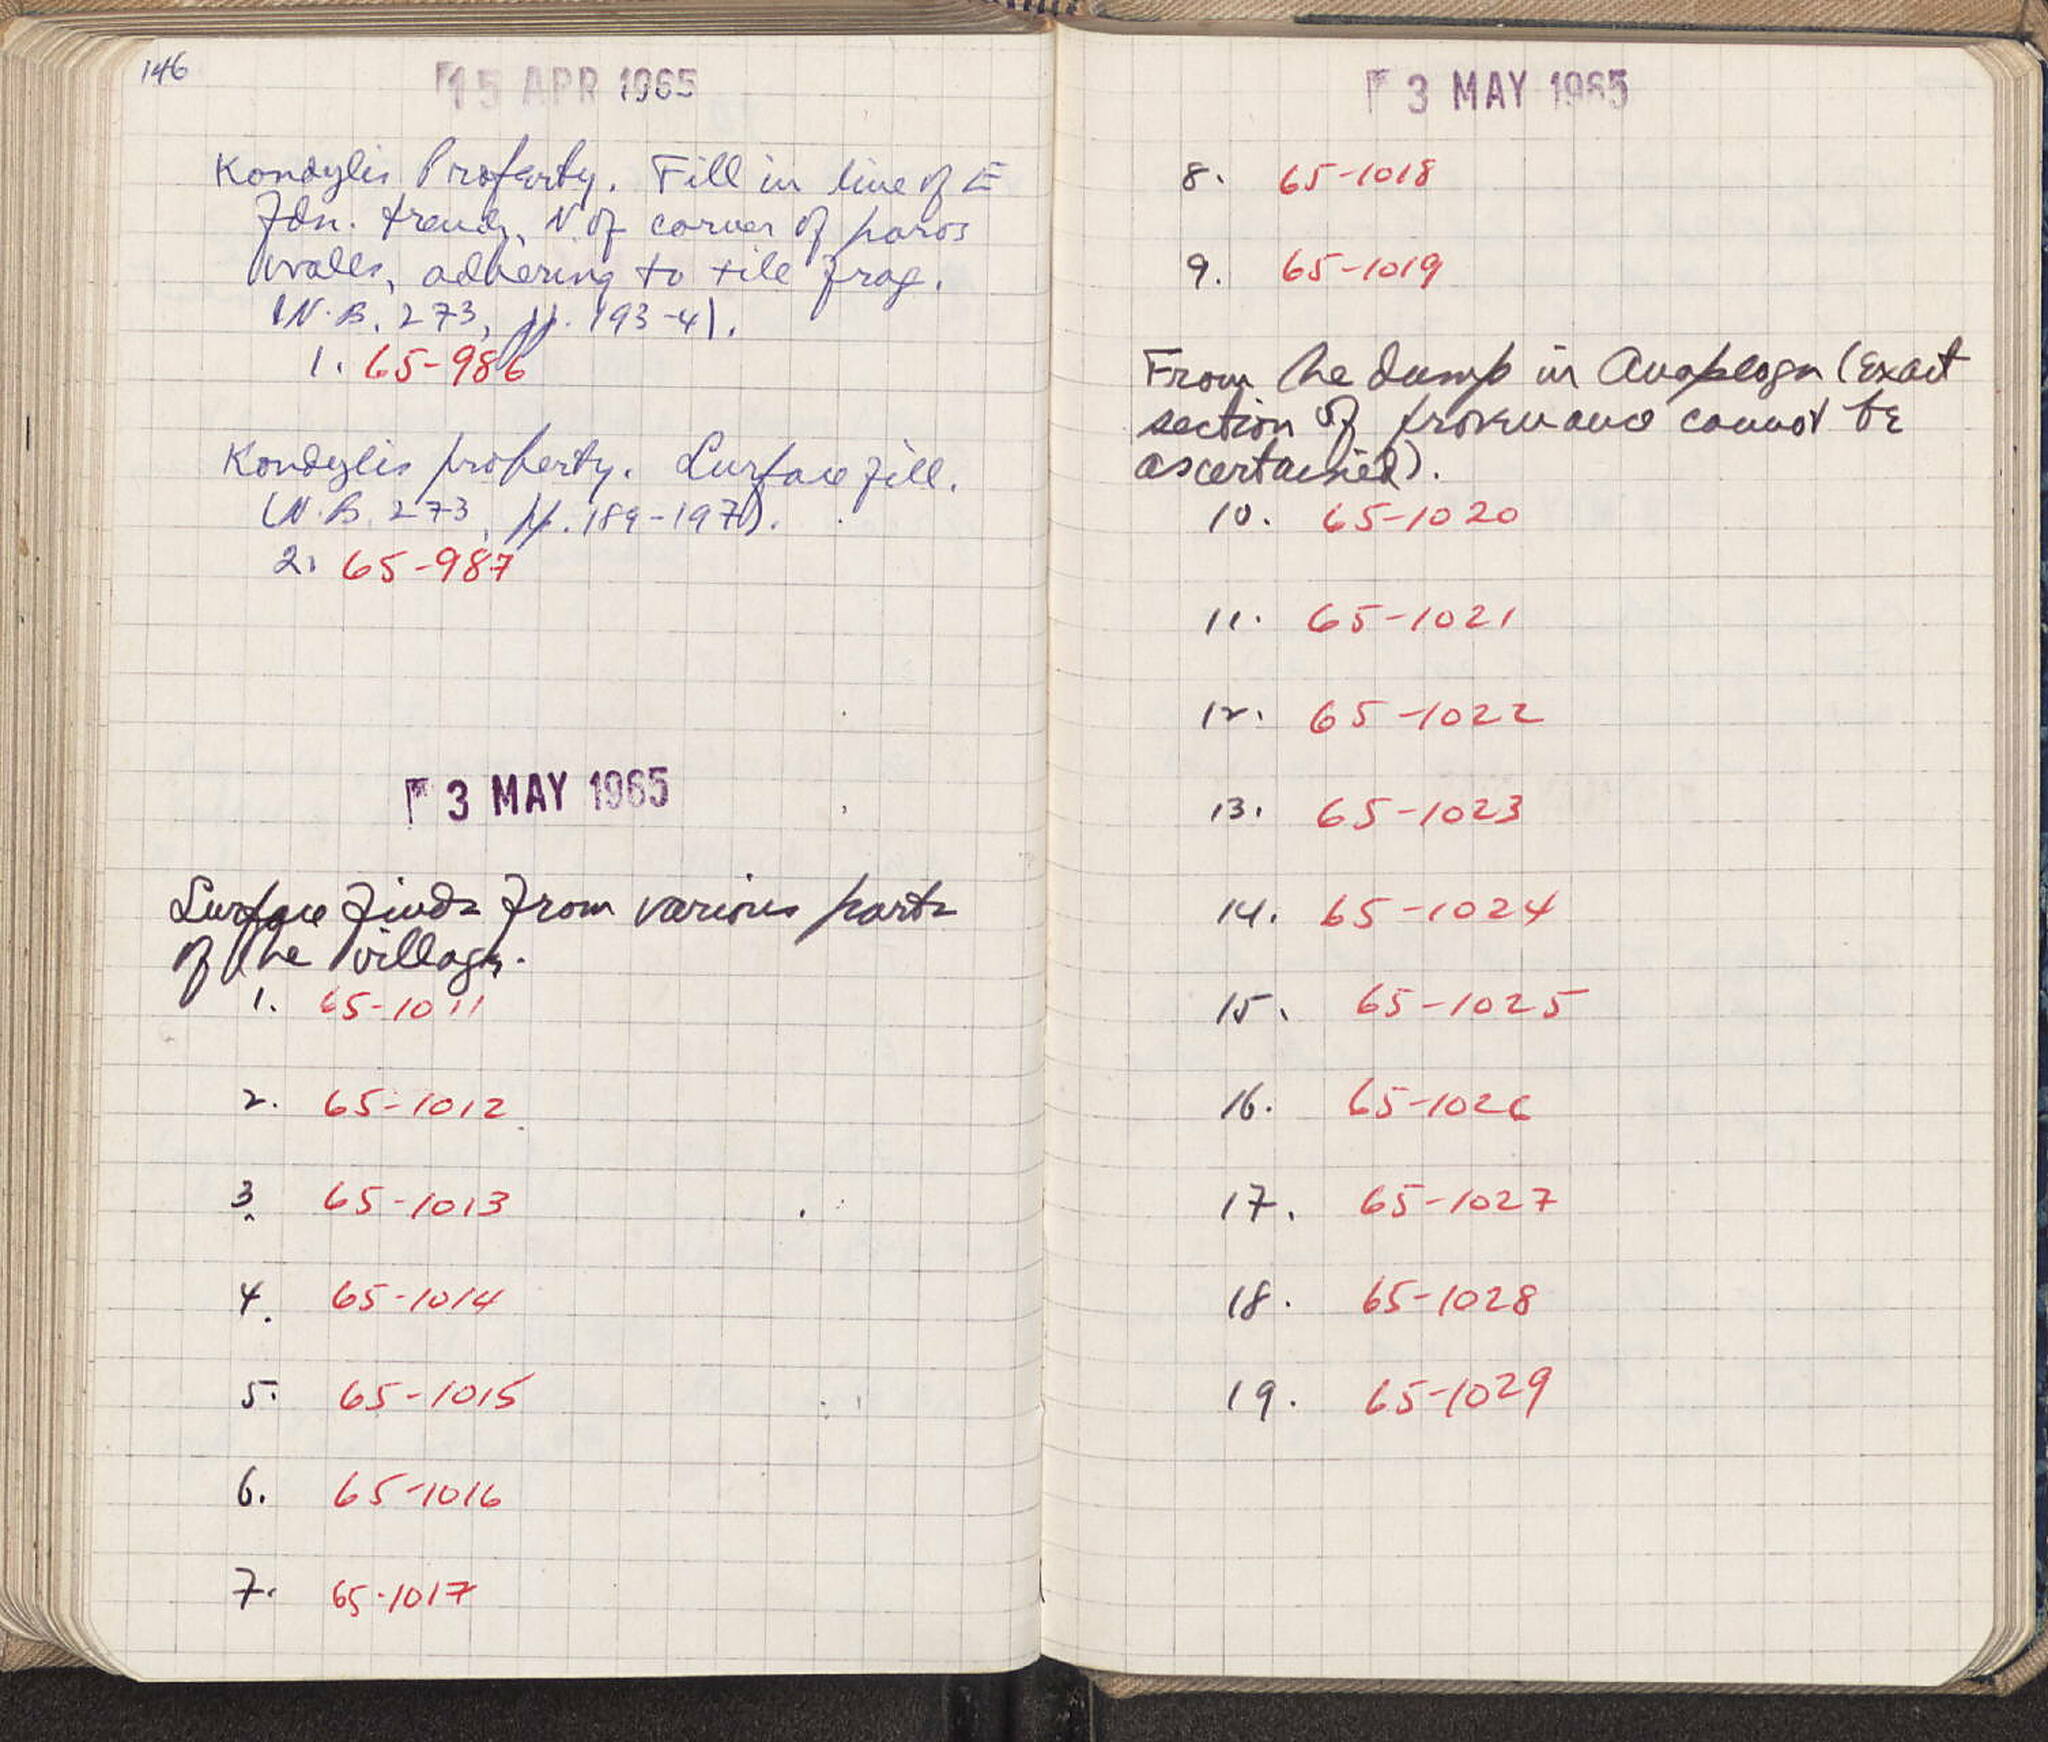 146
15 APR 1965
Kondylis Property. Fill in line of E
fdn. trench, N of corner of poros
walls, adhering to tile frag.
(N.B. 273, pp. 193-4).
1. 65-986
Kondylis property. Surface fill.
(N.B. 273, pp. 189-197).
2. 65-987
3 MAY 1965
Surface finds from various parts
of the village.
1. 65-1011
2. 65-1012
3. 65-1013
4. 65-1014
5. 65-1015
6. 65-1016
7. 65-1017
3 MAY 1965
8. 65-1018
9. 65-1019
From the dump in Anaploga (Exact
section of provenance cannot be
ascertained).
10. 65-1020
11. 65-1021
12. 65-1022
13. 65-1023
14. 65-1024
15. 65-1025
16. 65-1026
17. 65-1027
18. 65-1028
19. 65-1029